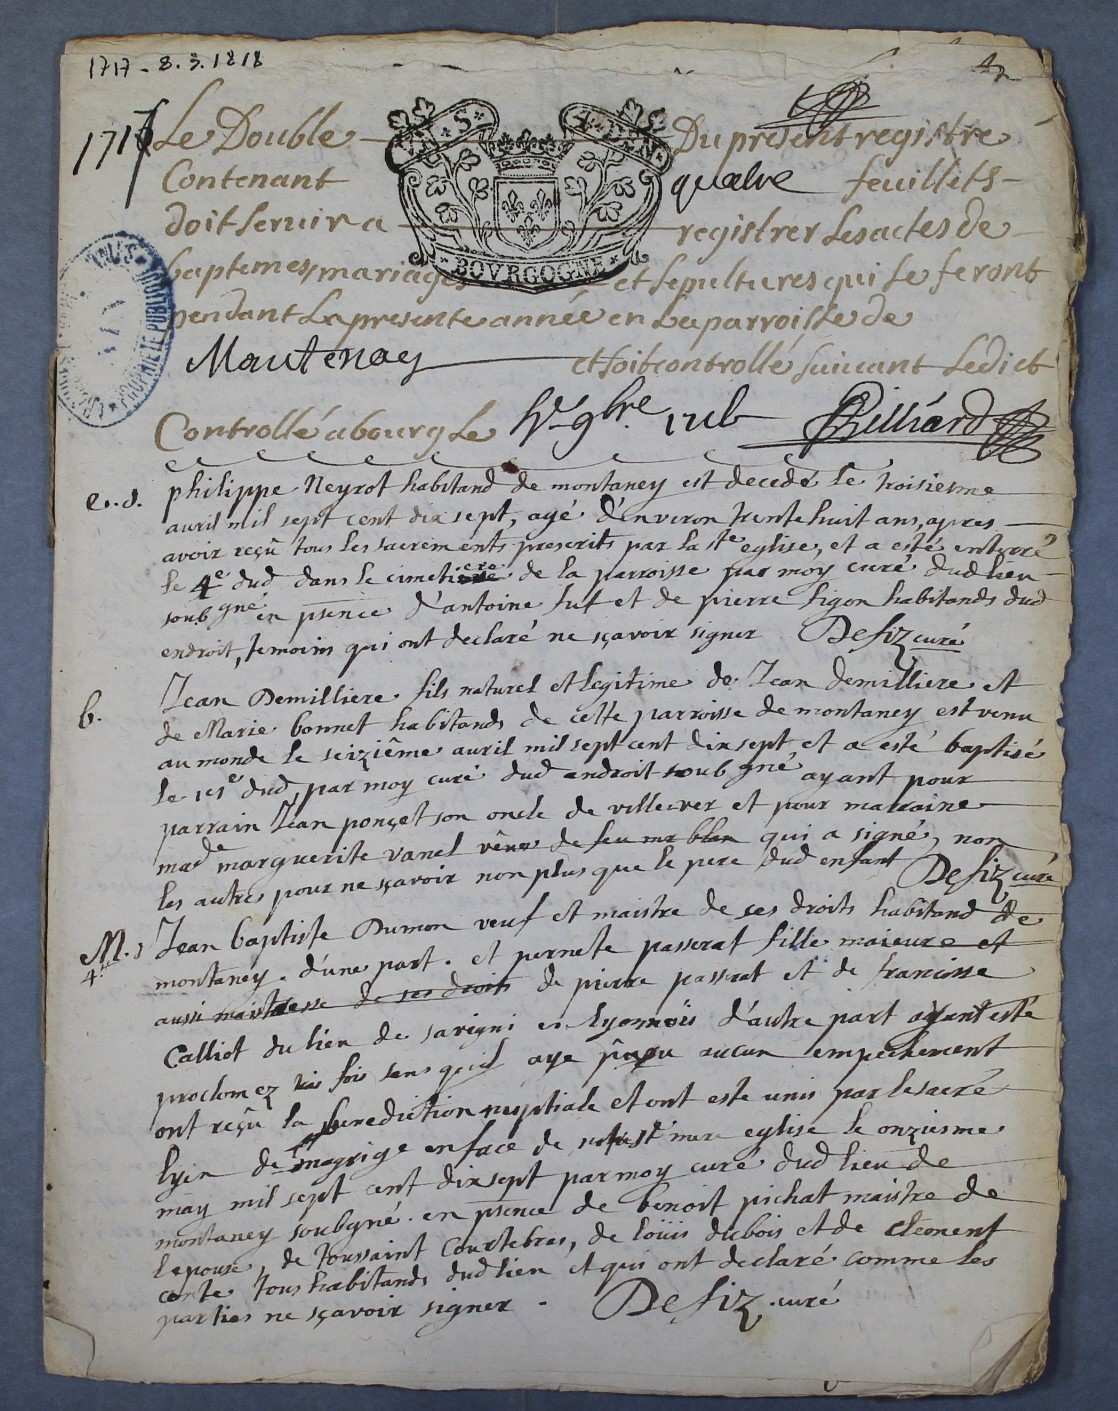 1717 - 8.3.1818
1717
Le Double Du present registre
Contenant quatre feuillets
doit servir a registrer les actes de
baptemes, mariages et sepultures qui se feront
pendant la presente année en la parroisse de
Montenay et soit controllé suivant ledict
Controllé a bourg le 9bre Billiard
BOVRGOGNE
PROPRIETE PUBLIQUE
e. d. philippe Neyrot habitand de montaney est decedé le troisiesme
avril mil sept cent dix sept, agé d'environ trente huit ans, apres
avoir reçû tous les sacrements prescrits par la ste eglise, et a esté enterré
le 4e dud dans le cimetiere de la parroisse par moy curé dud lieu
soubgné en psence d'antoine et de pierre ligon habitands dud
endroit, temoins qui ont declaré ne sçavoir signer Desiz curé
b. Jean Demilliere fils naturel et legitime de Jean demilliere et
de Marie bonnet habitands de cette parroisse de montaney est venu
au monde le seiziême avril mil sept cent dix sept et a esté baptisé
le dud, par moy curé dud androit soubgné ayant pour
parrain Jean ponçet son oncle de ville-ver et pour marraine
made marguerite vanel vêuve de feu mr blan qui a signé, non
les autres pour ne sçavoir non plus que le pere dud enfant Desiz curé
M. Jean baptiste Dumon veuf et maistre de ses droits habitand de
4 montaney. d'une part. et pernete passerat fille maieure et
aussi maistresse de ses droits de pierre passerat et de francisse
Calliot du lieu de savigni en lyonnois d'autre part ayant esté
proclomez trois fois sans quil aye aucun empechement
ont reçû la benediction nuptiale et ont esté unis par le sacré
lyen de mariage en face de notre ste mere eglise le onziesme
may mil sept cent dix sept par moy curé dud lieu de
montaney soubgné. en psence de benoit pichat maistre de
l'epouse, de toussaint courtebras, de loüis dubois et de clement
conte tous habitands dud lieu et qui ont declaré comme les
parties ne sçavoir signer. Desiz curé